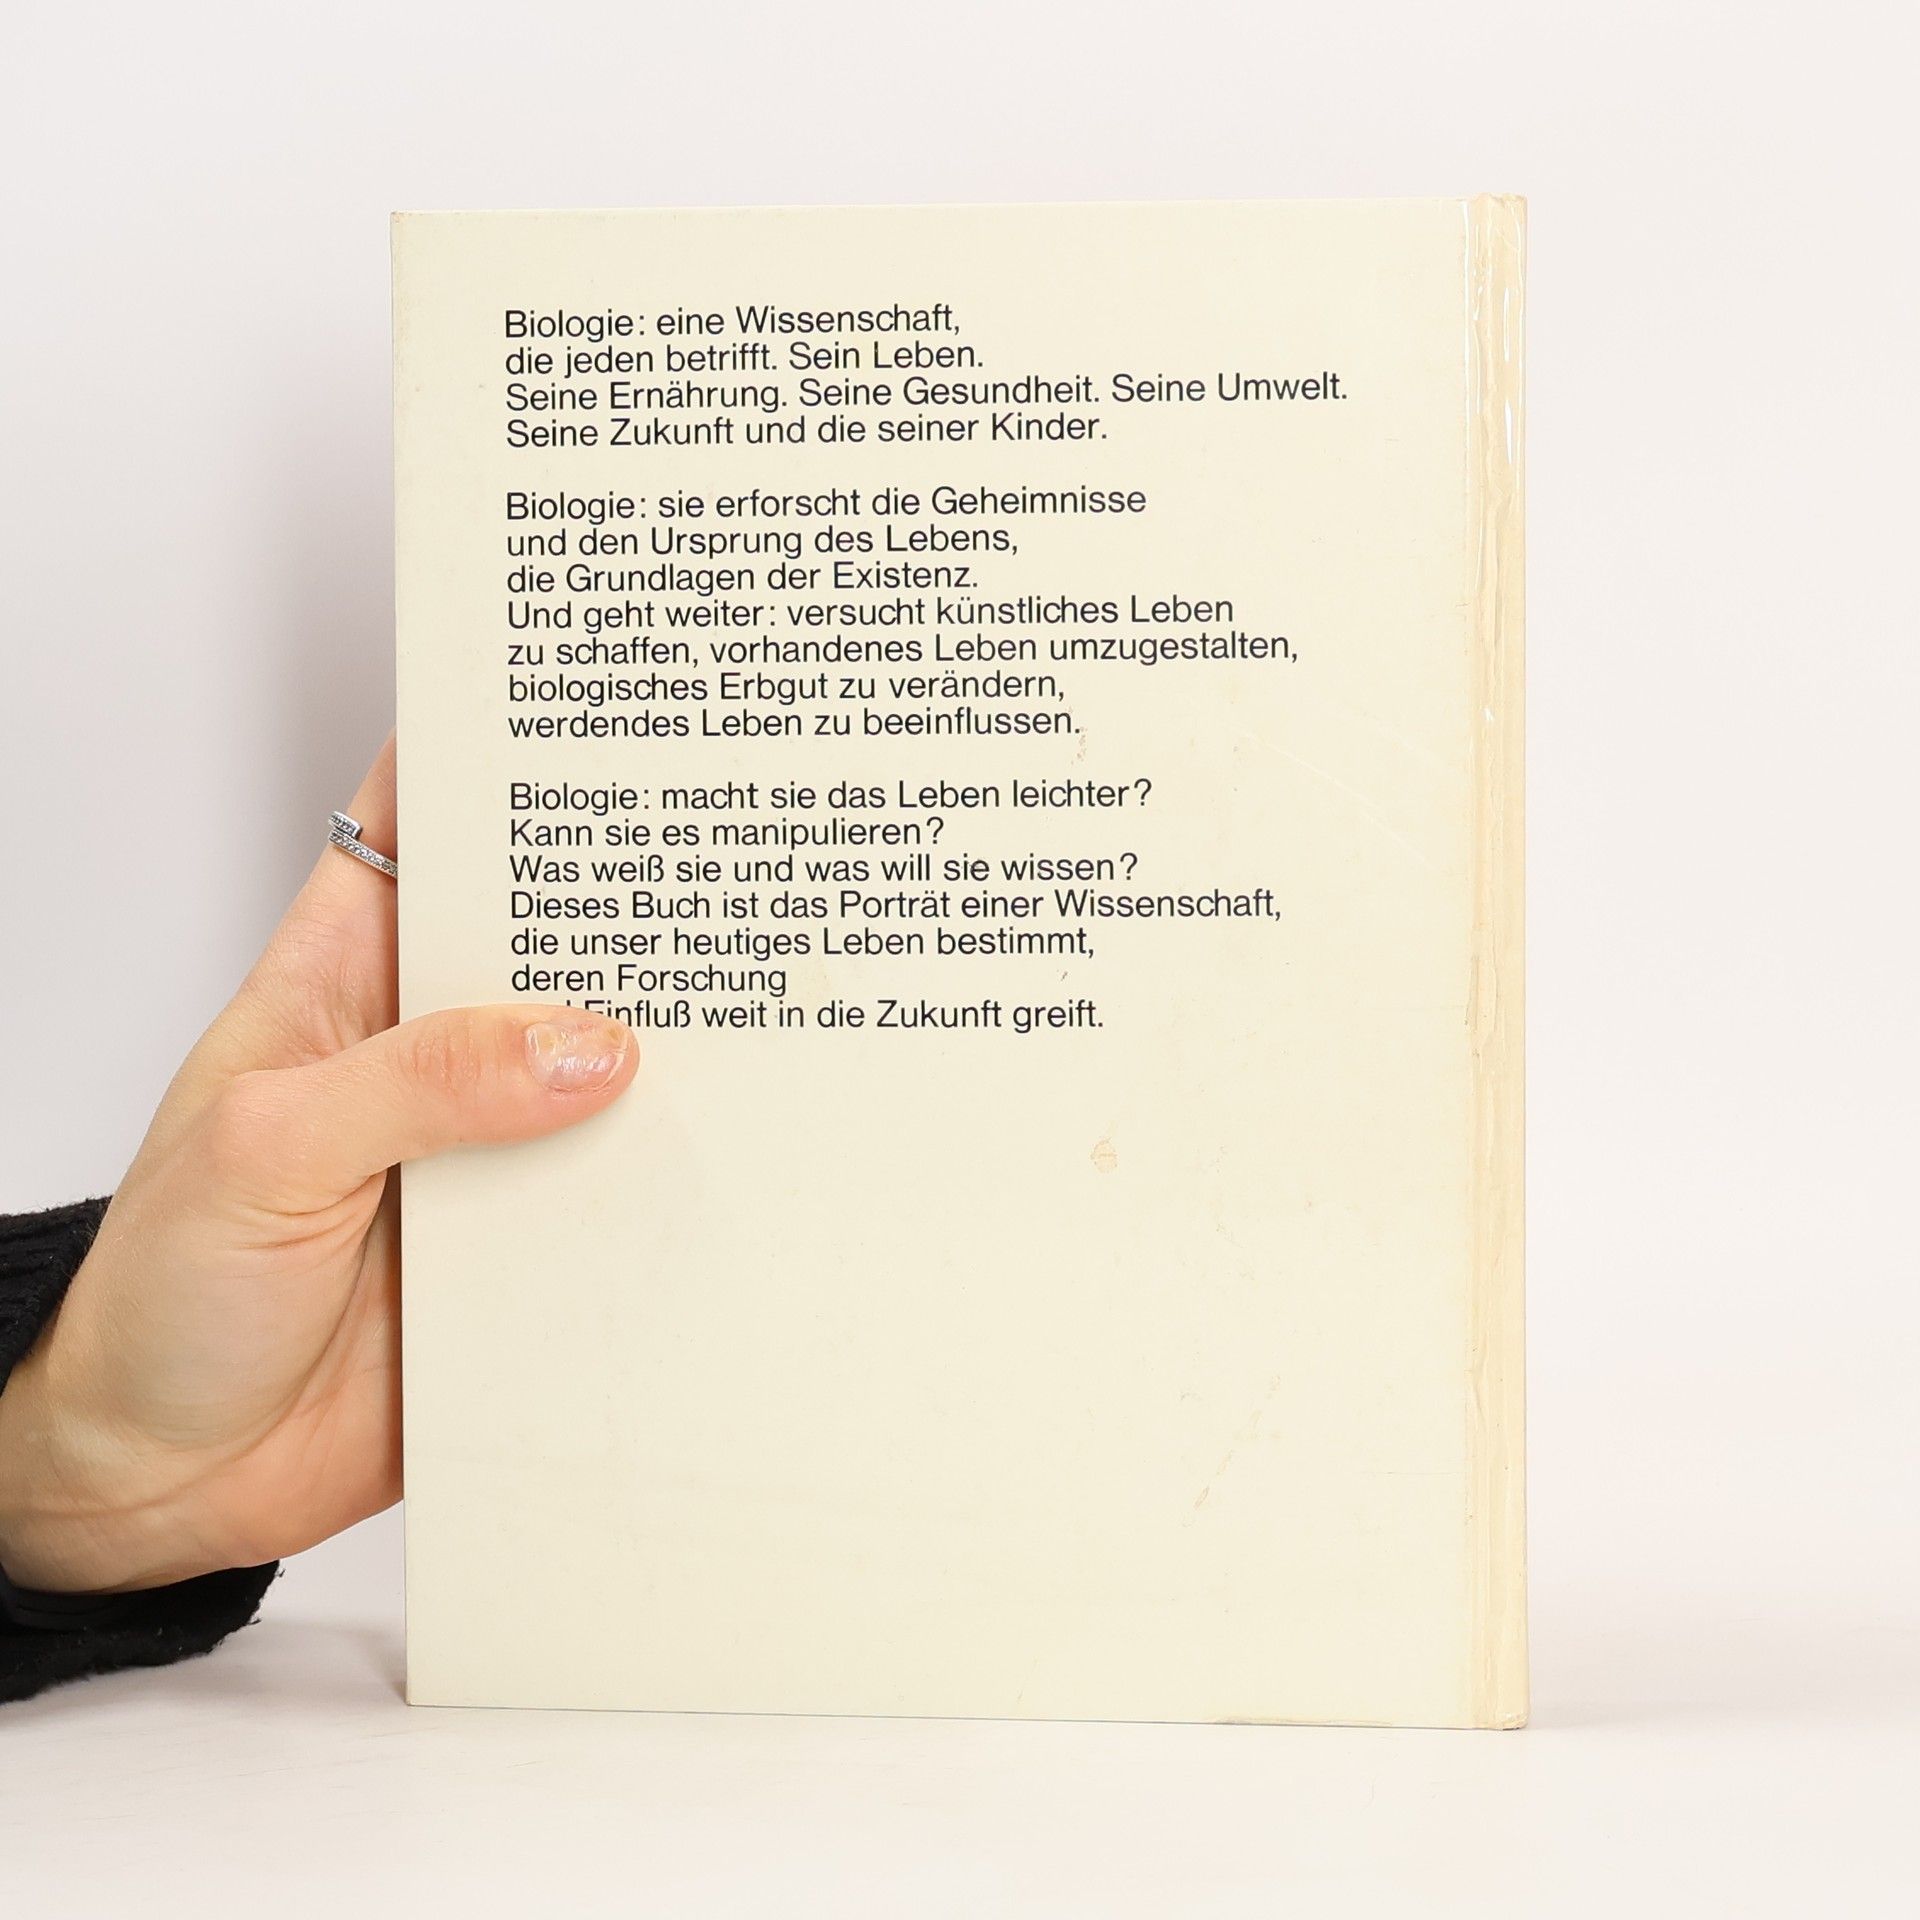 Biologie: eine Wissenschaft,
die jeden betrifft. Sein Leben.
Seine Ernährung. Seine Gesundheit. Seine Umwelt.
Seine Zukunft und die seiner Kinder.
Biologie: sie erforscht die Geheimnisse
und den Ursprung des Lebens,
die Grundlagen der Existenz.
Und geht weiter: versucht künstliches Leben
zu schaffen, vorhandenes Leben umzugestalten,
biologisches Erbgut zu verändern,
werdendes Leben zu beeinflussen.
Biologie: macht sie das Leben leichter?
Kann sie es manipulieren?
Was weiß sie und was will sie wissen?
Dieses Buch ist das Porträt einer Wissenschaft,
die unser heutiges Leben bestimmt,
deren Forschung
Einfluß weit in die Zukunft greift.